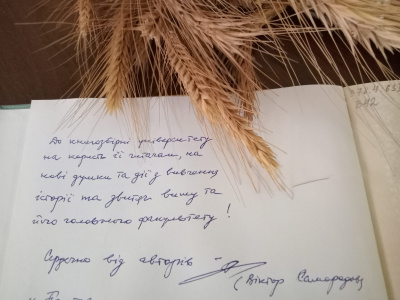 До книгозбірні університету
на користь її читачам, на
нові думки та дії з вивчення
історії та звитяг вишу та
його головного факультету!
Сердечно від авторів
(Віктор Самородов